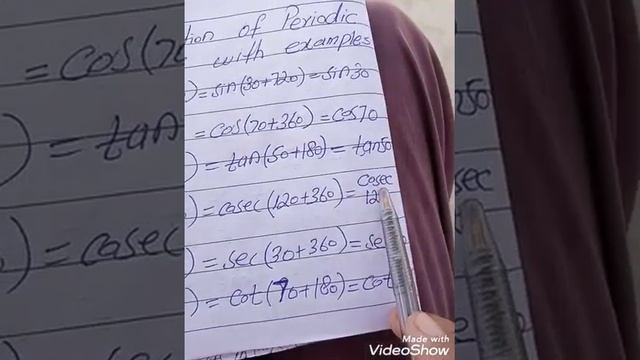 tion of Periodic
with examples
) = sin(30+720) = sin30
= cos(70+360) = cos70
) = tan(50+180) = tan50
) = cosec(120+360) = cosec
12
) = sec(30+360) = se
) = cot(70+180) = cot
Made with
VideoShow